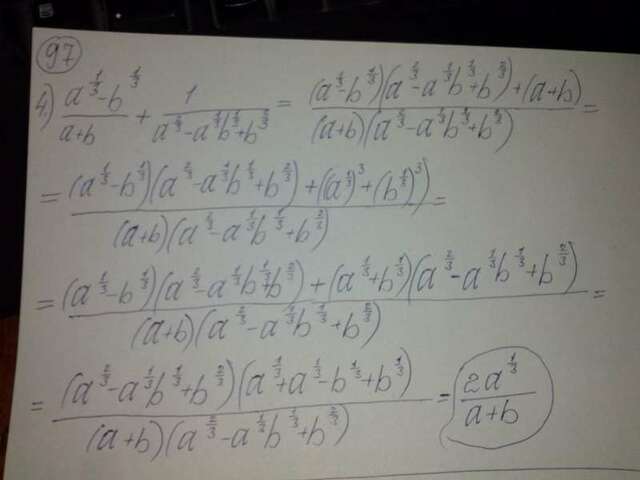 97
4) (a^{1/3} - b^{1/3})/(a+b) + 1/(a^{2/3} - a^{1/3}b^{1/3} + b^{2/3}) = ((a^{1/3} - b^{1/3})(a^{2/3} - a^{1/3}b^{1/3} + b^{2/3}) + (a+b))/((a+b)(a^{2/3} - a^{1/3}b^{1/3} + b^{2/3})) =
= ((a^{1/3} - b^{1/3})(a^{2/3} - a^{1/3}b^{1/3} + b^{2/3}) + ((a^{1/3})^3 + (b^{1/3})^3))/((a+b)(a^{2/3} - a^{1/3}b^{1/3} + b^{2/3})) =
= ((a^{1/3} - b^{1/3})(a^{2/3} - a^{1/3}b^{1/3} + b^{2/3}) + (a^{1/3} + b^{1/3})(a^{2/3} - a^{1/3}b^{1/3} + b^{2/3}))/((a+b)(a^{2/3} - a^{1/3}b^{1/3} + b^{2/3})) =
= ((a^{2/3} - a^{1/3}b^{1/3} + b^{2/3})(a^{1/3} + a^{1/3} - b^{1/3} + b^{1/3}))/((a+b)(a^{2/3} - a^{1/3}b^{1/3} + b^{2/3})) = 2a^{1/3}/(a+b)